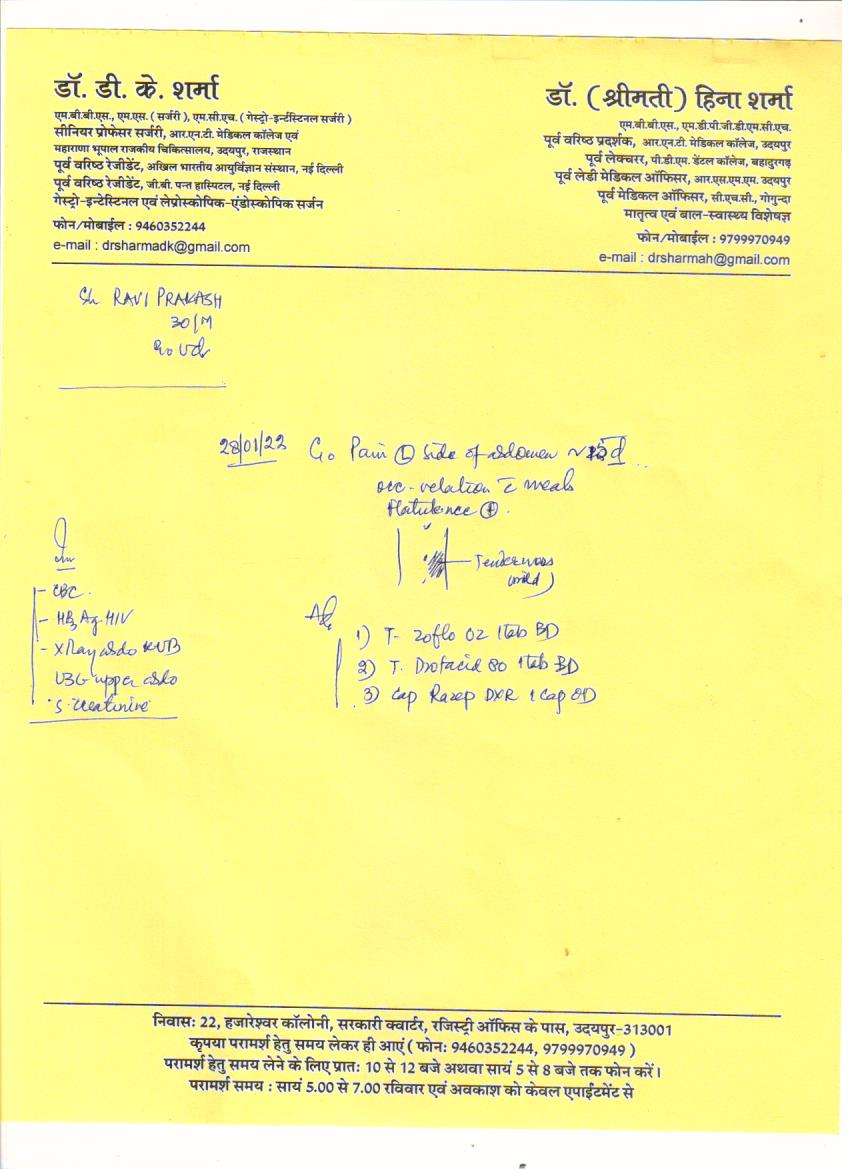 डॉ. डी. के. शर्मा
एम.बी.बी.एस., एम.एस. ( सर्जरी ), एम.सी.एच. ( गेस्ट्रो-इन्टेस्टिनल सर्जरी )
सीनियर प्रोफेसर सर्जरी, आर.एन.टी. मेडिकल कॉलेज एवं
महाराणा भूपाल राजकीय चिकित्सालय, उदयपुर, राजस्थान
पूर्व वरिष्ठ रेजीडेंट, अखिल भारतीय आयुर्विज्ञान संस्थान, नई दिल्ली
पूर्व वरिष्ठ रेजीडेंट, जी.बी. पन्त हास्पिटल, नई दिल्ली
गेस्ट्रो-इन्टेस्टिनल एवं लेप्रोस्कोपिक-एंडोस्कोपिक सर्जन
फोन/मोबाईल : 9460352244
e-mail : drsharmadk@gmail.com
डॉ. (श्रीमती) हिना शर्मा
एम.बी.बी.एस., एम.डी.पी.जी.डी.एम.सी.एच.
पूर्व वरिष्ठ प्रदर्शक, आर.एन.टी. मेडिकल कॉलेज, उदयपुर
पूर्व लेक्चरर, पी.डी.एम. डेंटल कॉलेज, बहादुरगढ़
पूर्व लेडी मेडिकल ऑफिसर, आर.एस.एम.एम. उदयपुर
पूर्व मेडिकल ऑफिसर, सी.एच.सी., गोगुन्दा
मातृत्व एवं बाल-स्वास्थ्य विशेषज्ञ
फोन/मोबाईल : 9799970949
e-mail : drsharmah@gmail.com
Sh RAVI PRAKASH
30/M
R/o Udr
28/01/22 C/o Pain (L) side of abdomen ~ 15d
occ-relation c meals
Flatulence (+).
Tenderness
(mild)
Inv
- CBC.
- HBsAg. HIV
- X Ray abdo KUB
USG upper abdo
S. creatinine
Adv
1) T- Zoflo OZ 1 tab BD
2) T. Drotacid 80 1 tab BD
3) Cap Razep DXR 1 cap OD
निवासः 22, हजारेश्वर कॉलोनी, सरकारी क्वार्टर, रजिस्ट्री ऑफिस के पास, उदयपुर-313001
कृपया परामर्श हेतु समय लेकर ही आएं ( फोनः 9460352244, 9799970949 )
परामर्श हेतु समय लेने के लिए प्रातः 10 से 12 बजे अथवा सायं 5 से 8 बजे तक फोन करें।
परामर्श समय : सायं 5.00 से 7.00 रविवार एवं अवकाश को केवल एपाईंटमेंट से